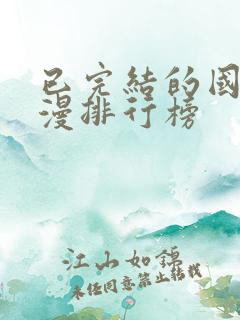 已完結的國
漫排行榜
江山如錦
未经同意禁止转载